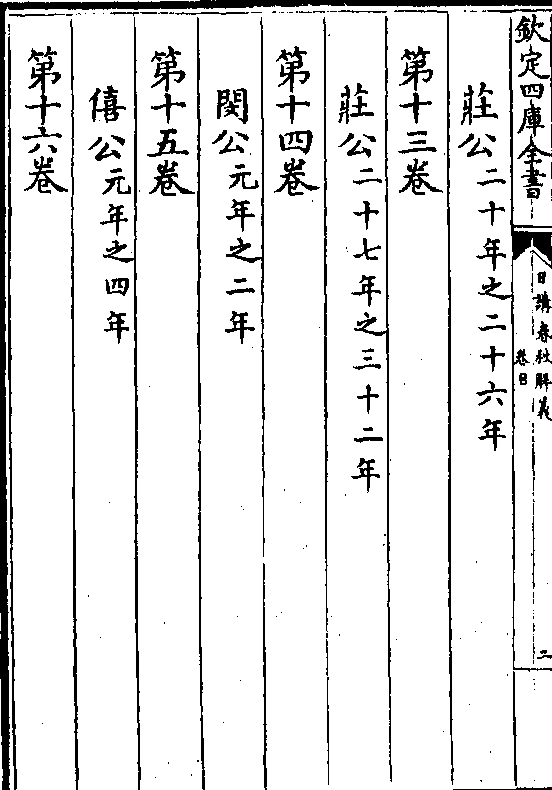 欽定四庫全書
日講春秋解義
卷目
二
莊公二十年之二十六年
第十三卷
莊公二十七年之三十二年
第十四卷
閔公元年之二年
第十五卷
僖公元年之四年
第十六卷